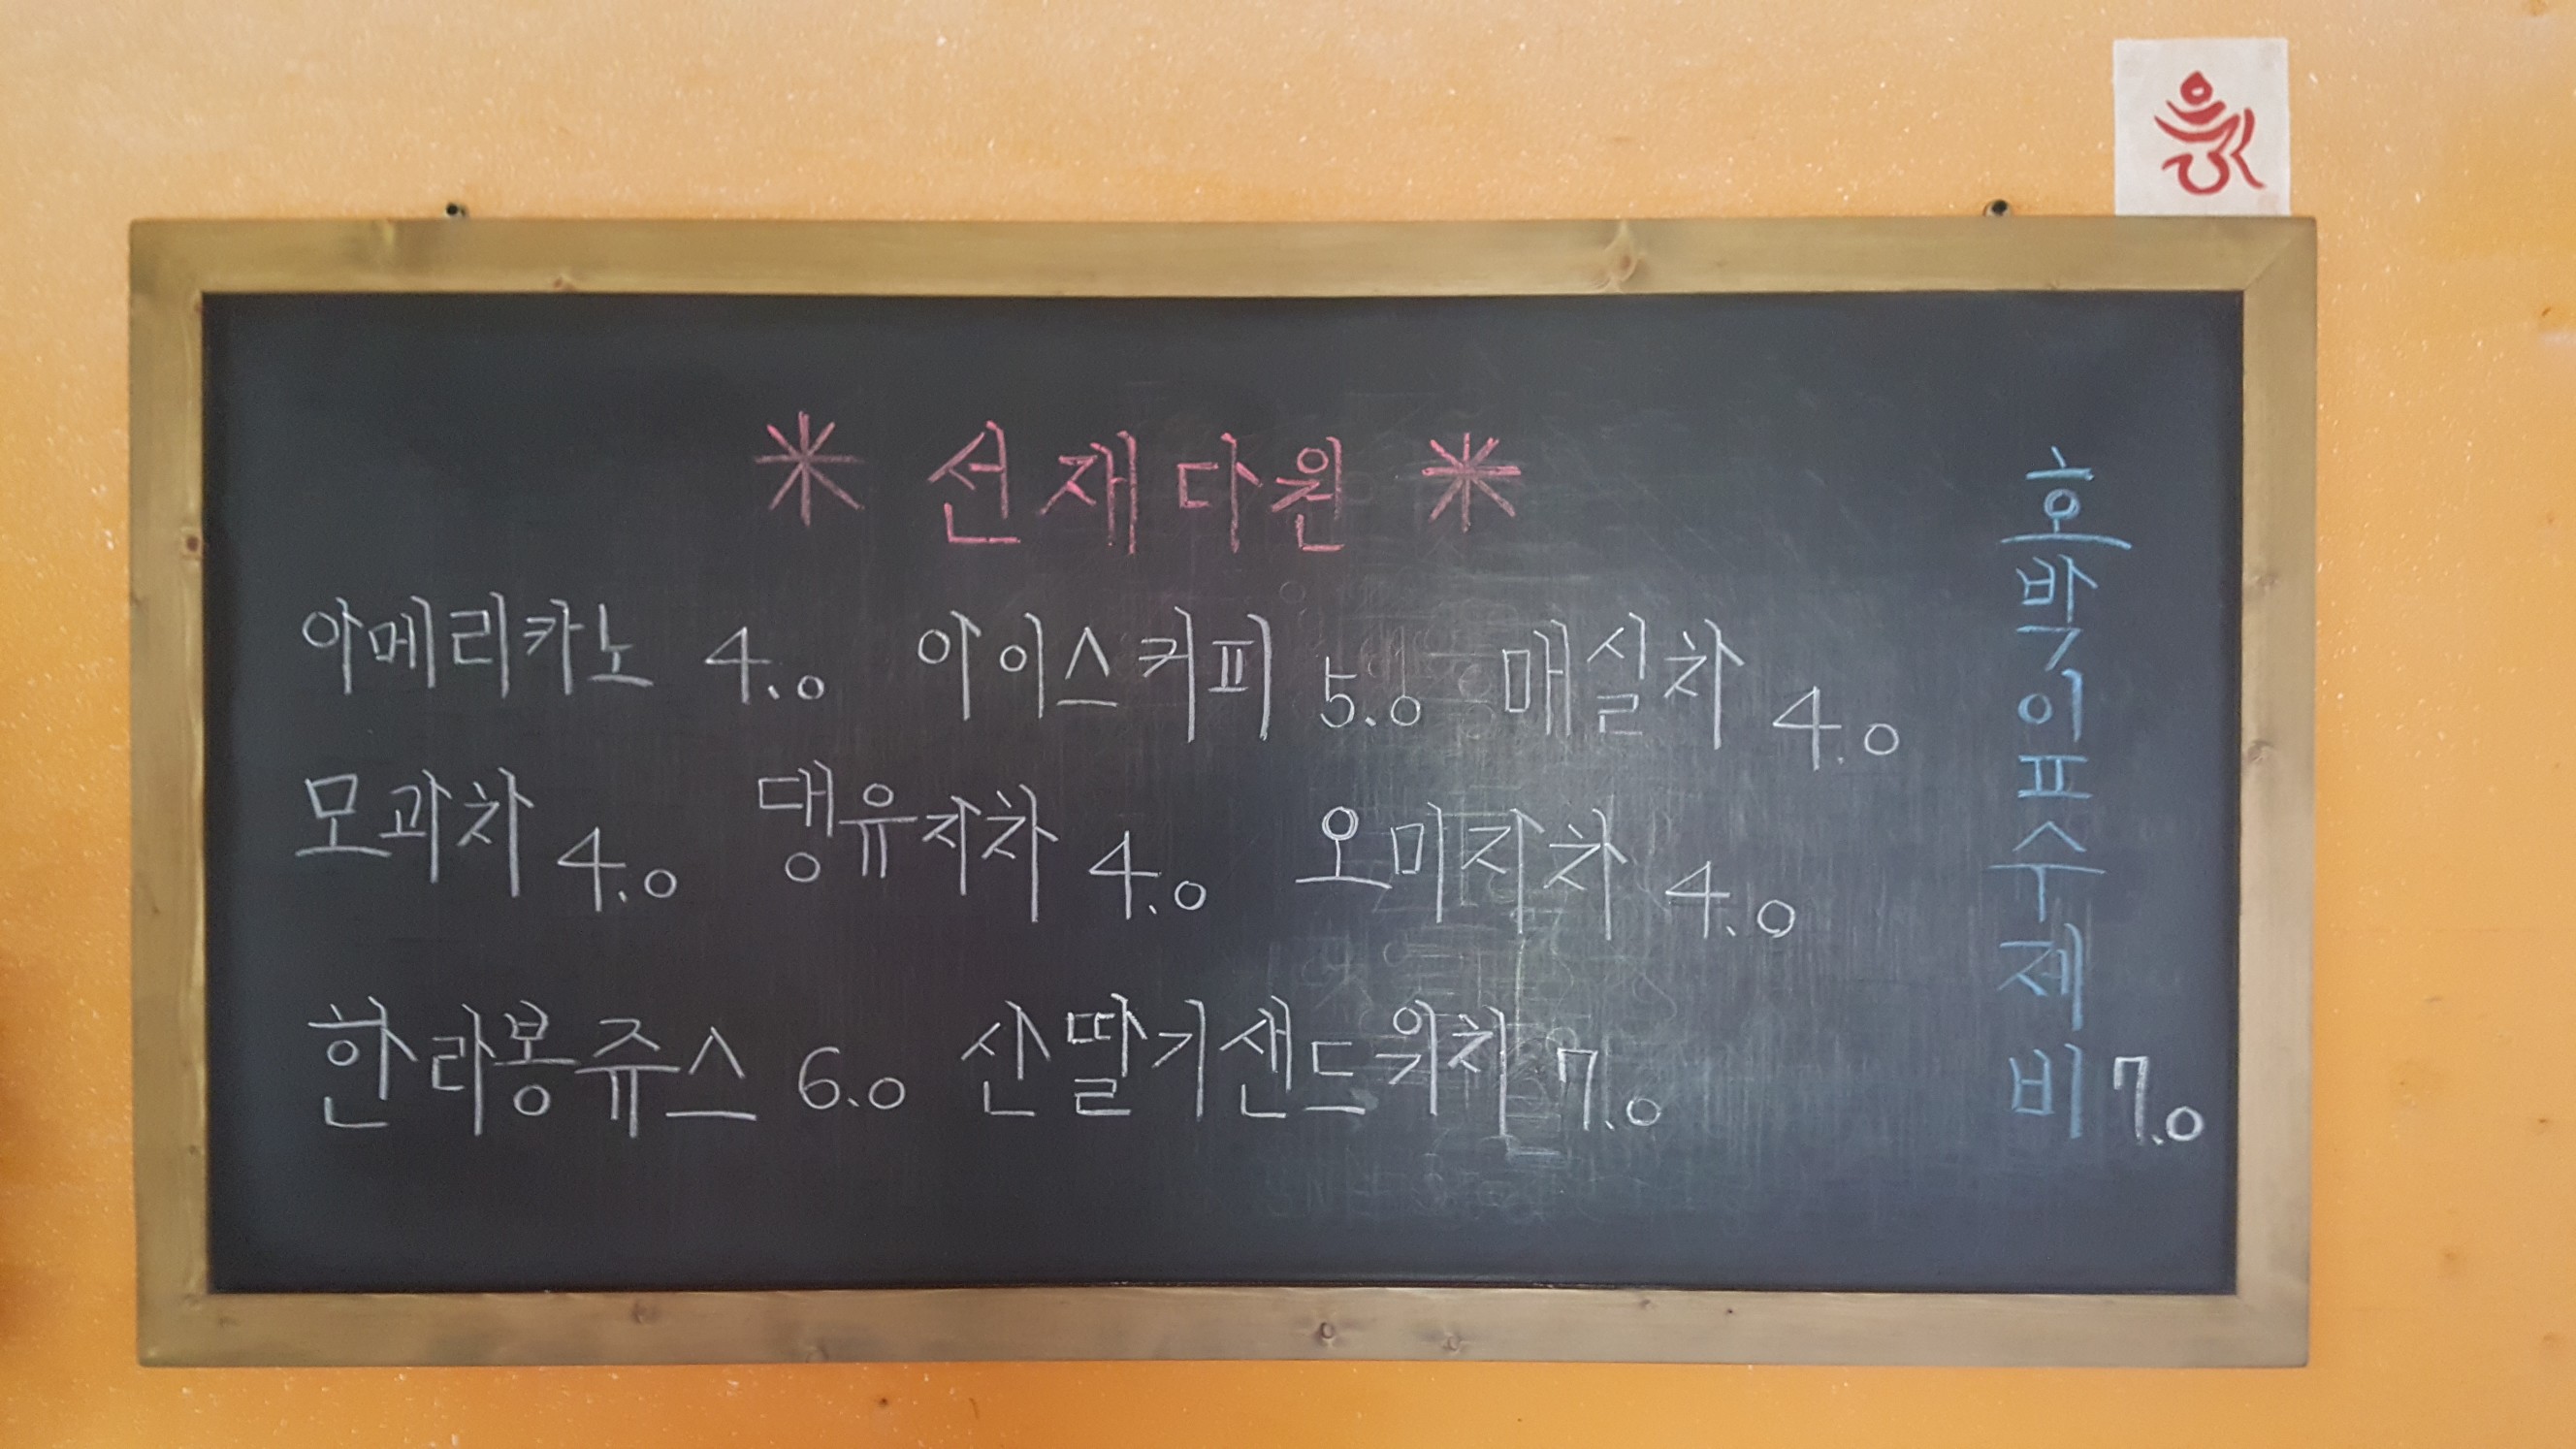 * 선재다원 *
아메리카노 4.0 아이스커피 5.0 매실차 4.0
모과차 4.0 댕유자차 4.0 오미자차 4.0
한라봉쥬스 6.0 산딸기샌드위치 7.0
호박이표수제비 7.0